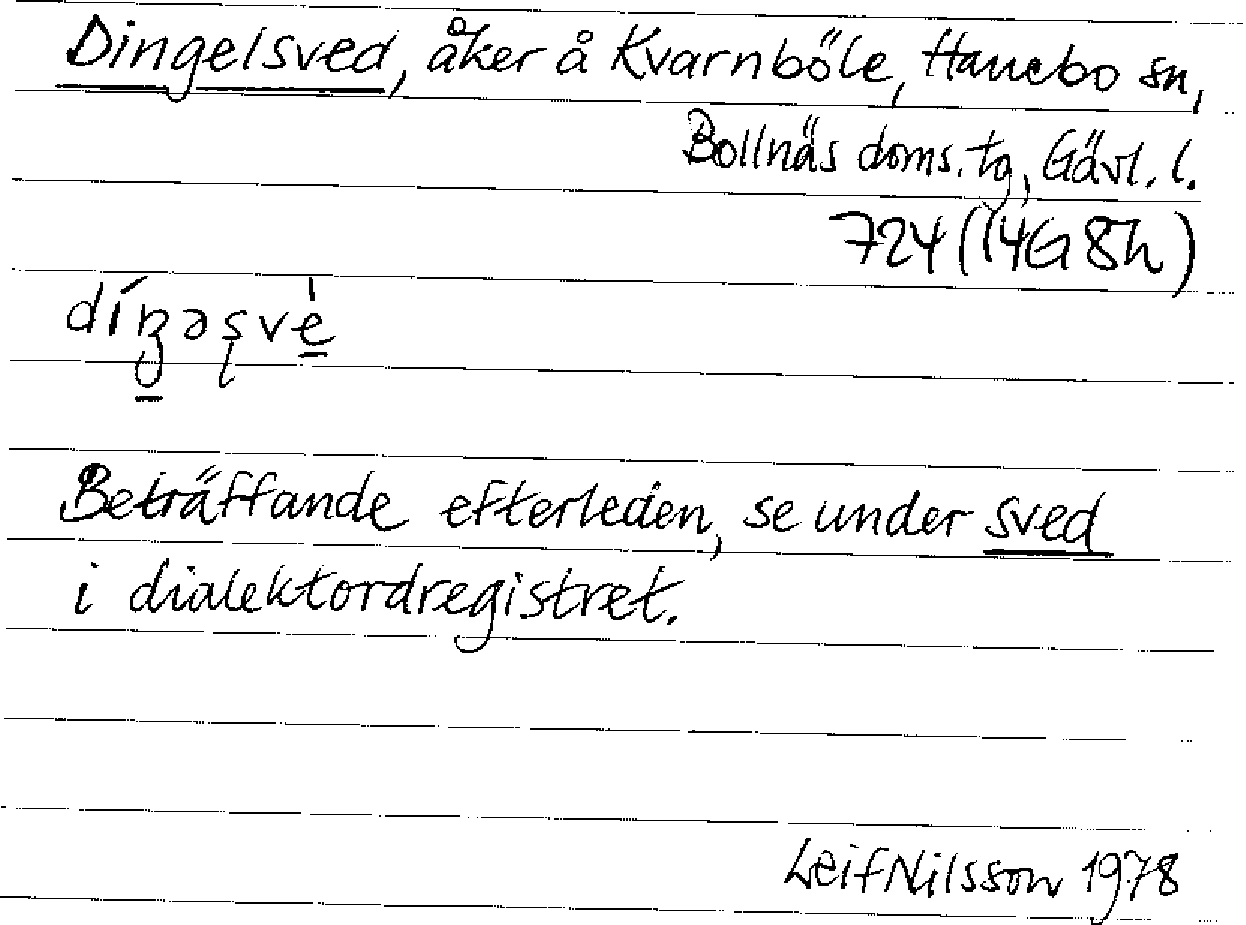 Dingelsved, åker å Kvarnböle, Hanebo sn,
Bollnäs doms. tg, Gävl. l.
724 (14G 8h)
Beträffande efterleden, se under sved
i dialektordregistret.
Leif Nilsson 1978